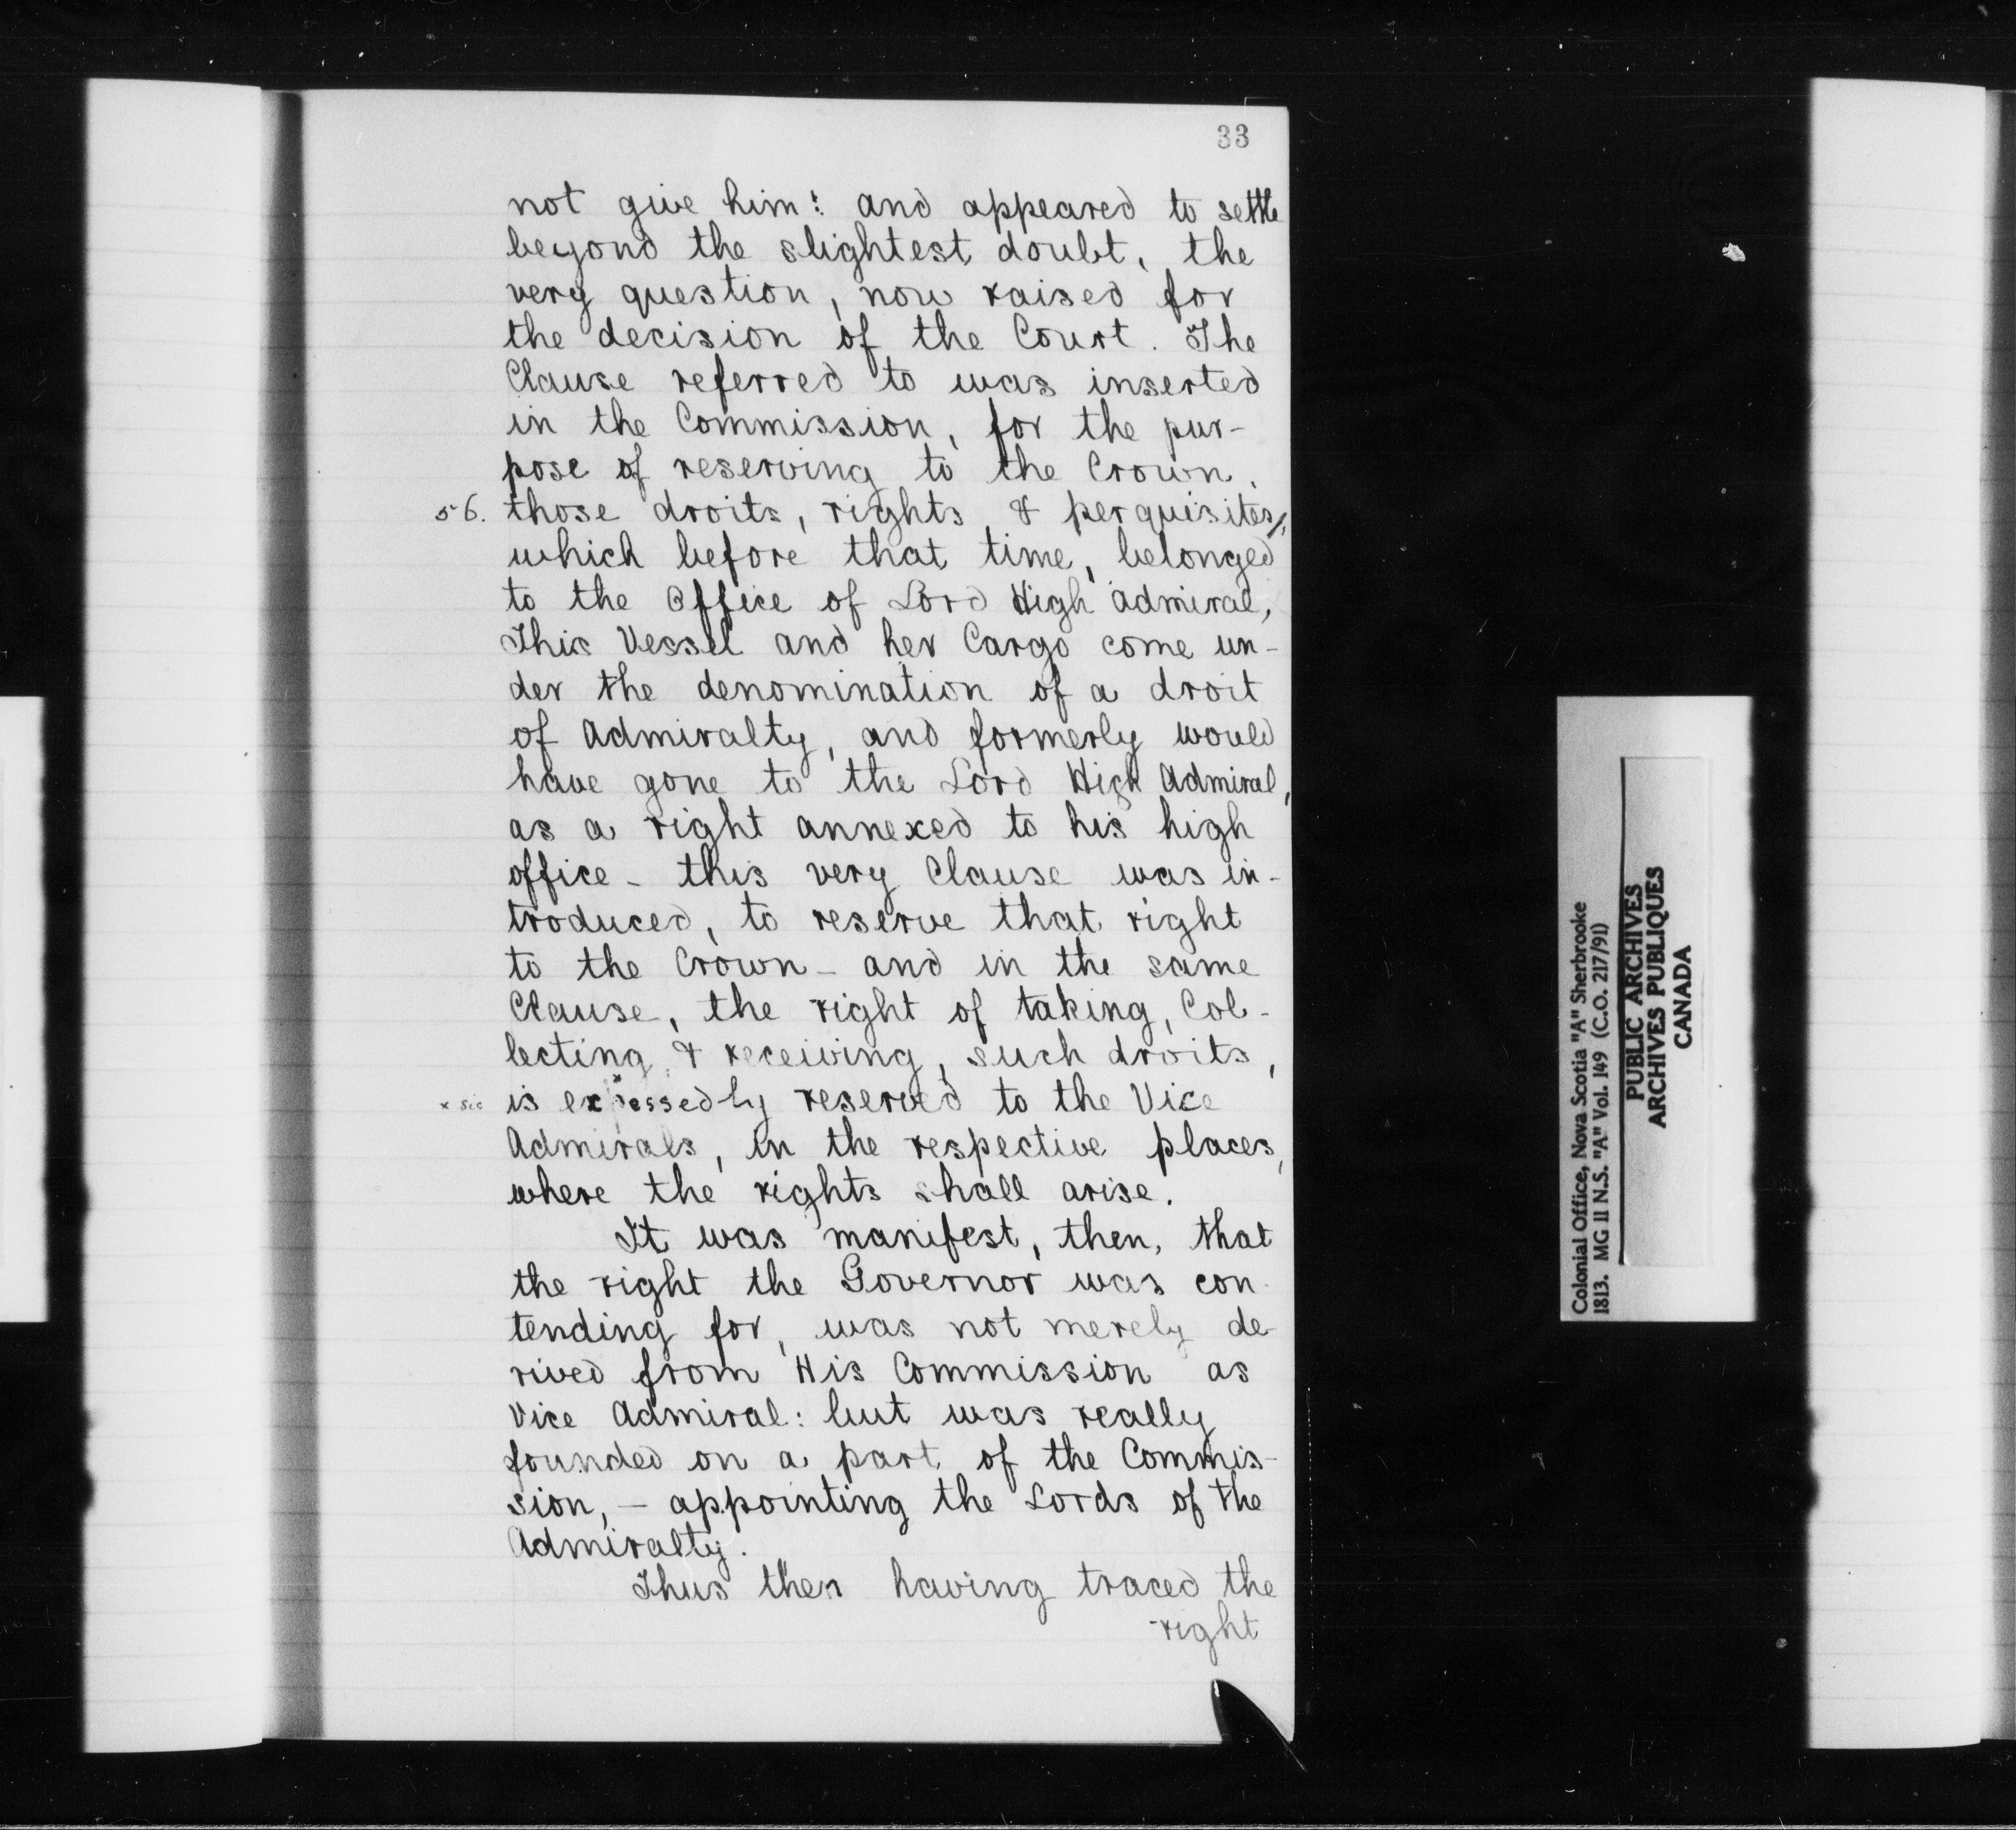 33
not give him: and appeared to settle
beyond the slightest doubt, the
very question, now raised for
the decision of the Court. The
Clause referred to was inserted
in the Commission, for the pur-
pose of reserving to the Crown,
56. those droits, rights, & perquisites/,
which before that time, belonged
to the Office of Lord High Admiral,
This Vessel and her Cargo come un-
der the denomination of a droit
of Admiralty, and formerly would
have gone to the Lord High Admiral,
as a right annexed to his high
office - this very Clause was in-
troduced, to reserve that right
to the Crown - and in the same
Clause, the right of taking, Col-
lecting, & receiving, such droits,
x sic is expessedly reserved to the Vice
Admirals, in the respective places,
where the rights shall arise.
It was manifest, then, that
the right the Governor was con-
tending for, was not merely de-
rived from His Commission as
Vice Admiral: but was really
founded on a part of the Commis-
sion, - appointing the Lords of the
Admiralty.
Thus then having traced the
right
Colonial Office, Nova Scotia "A" Sherbrooke
1813. MG 11 N.S. "A" Vol. 149 (C.O. 217/91)
PUBLIC ARCHIVES
ARCHIVES PUBLIQUES
CANADA